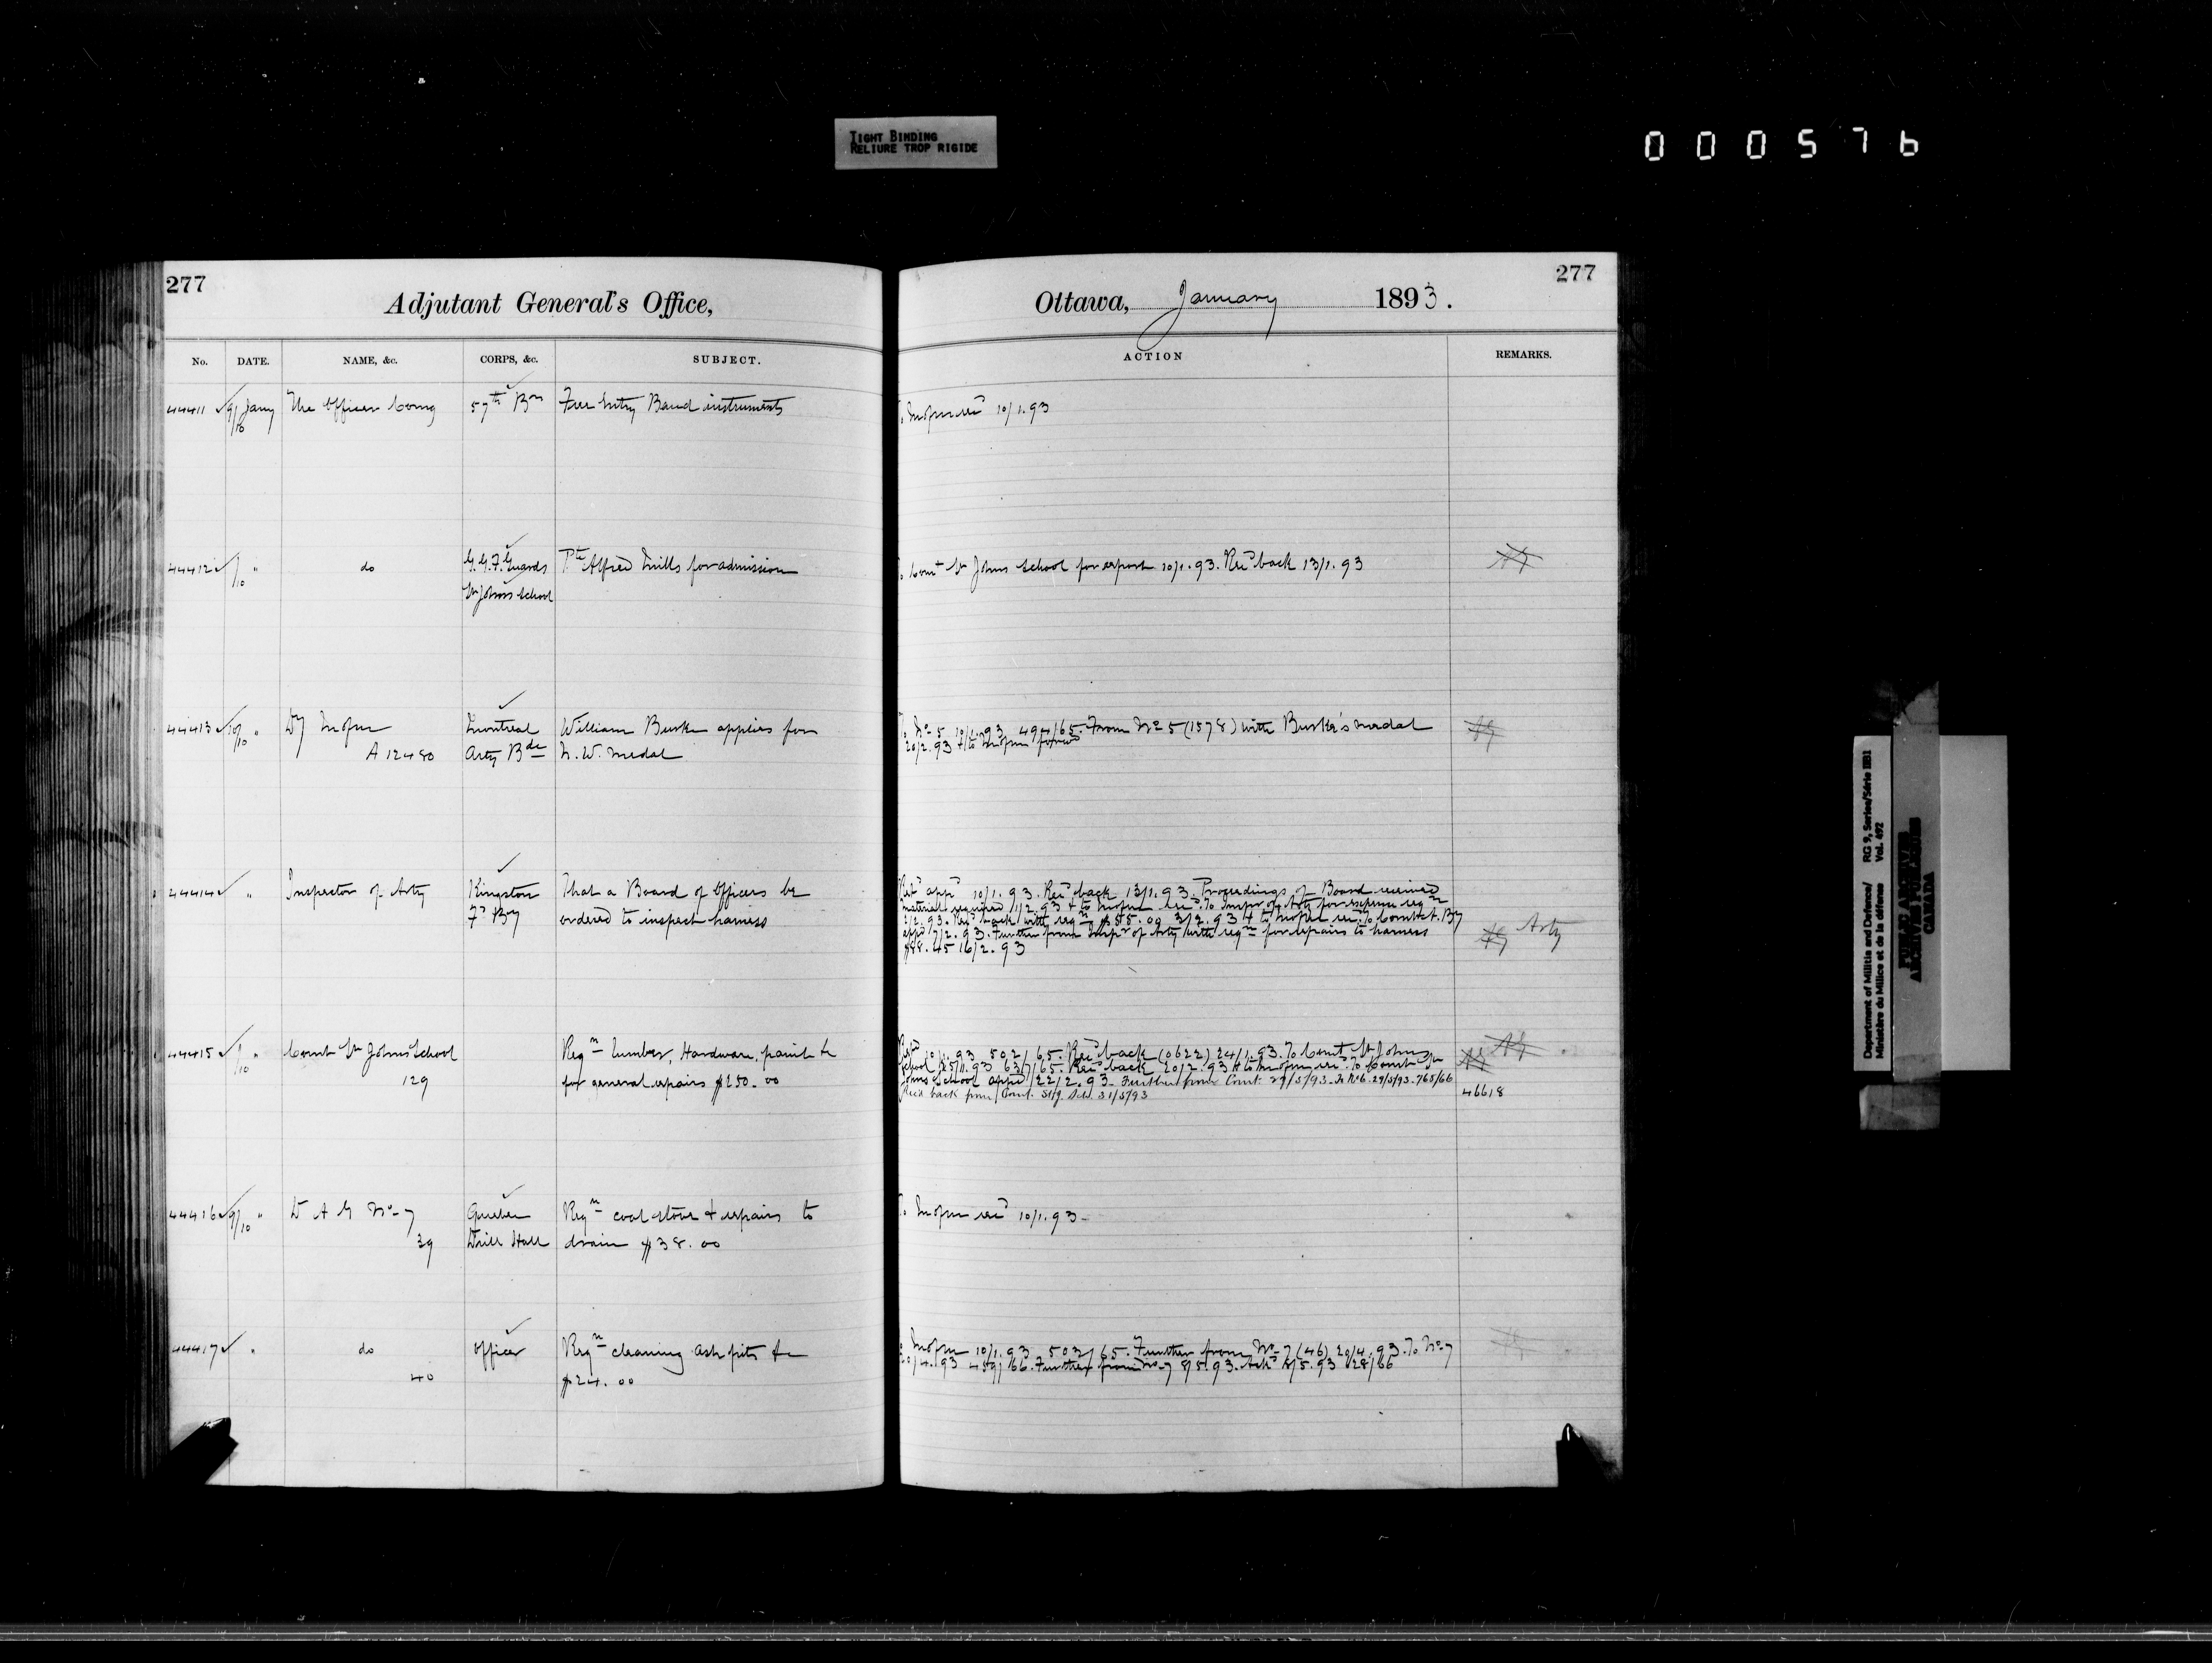 TIGHT BINDING
RELIURE TROP RIGIDE
000576
277
Adjutant General's Office,
No. DATE. NAME, &c. CORPS, &c. SUBJECT.
44411 9/10 Jany The Officer Comg 57th Bn Free Entry Band instruments
44412 /10 " do G.G.F. Guards Pte Alfred Mills for admission
St Johns School
44413 10/10 " Dy Montreal William Burke applies for
A 12480 Arty Bde N.W. Medal
44414 " Inspector of Arty Kingston That a Board of Officers be
Fd By ordered to inspect harness
44415 /10 " Comt St Johns School Reqn lumber, Hardware, paint &c
129 for general repairs $250.00
44416 9/10 " D A G No 7 Quebec Reqn coal stove & repairs to
39 Drill Hall drain $38.00
44417 " do Officer Reqn cleaning ash pits &c
40 $24.00
277
Ottawa, January 1893.
ACTION REMARKS.
10/1.93
Comt St Johns School for report 10/1.93. Recd back 13/1.93
To No 5 10/1.93 494/65. From No 5 (1578) with Burke's medal
20/2.93 & to
appd 10/1.93. Recd back 13/1.93. Proceedings of Board received
material required 1/2.93 & to Inspr of Arty for reqn
2/2.93. Recd back with reqn $55.00 3/2.93 & to Comt A. By
appd 7/2.93. Further from Inspr of Arty with reqn for repairs to harness
$88.45 16/2.93
Arty
10/1.93 502/65. Recd back (0622) 24/1.93. To Comt St Johns
School 25/1.93 637/65. Recd back 20/2.93 & to To Comt St
Johns School appd 22/2.93. Further from Comt. 29/5/93. To No 6. 29/5/93. 765/66
Recd back from Comt. 31/5/93
46618
10/1.93
10/1.93 503/65. Further from No 7 (46) 20/4.93. To No 7
20/4.93 459/66. Further from No 7 8/5.93. 5.93 28/66
Department of Militia and Defence/ RG 9, Series/Série IIB1
Ministère du Milice et de la défense Vol. 492
PUBLIC ARCHIVES
ARCHIVES PUBLIQUES
CANADA